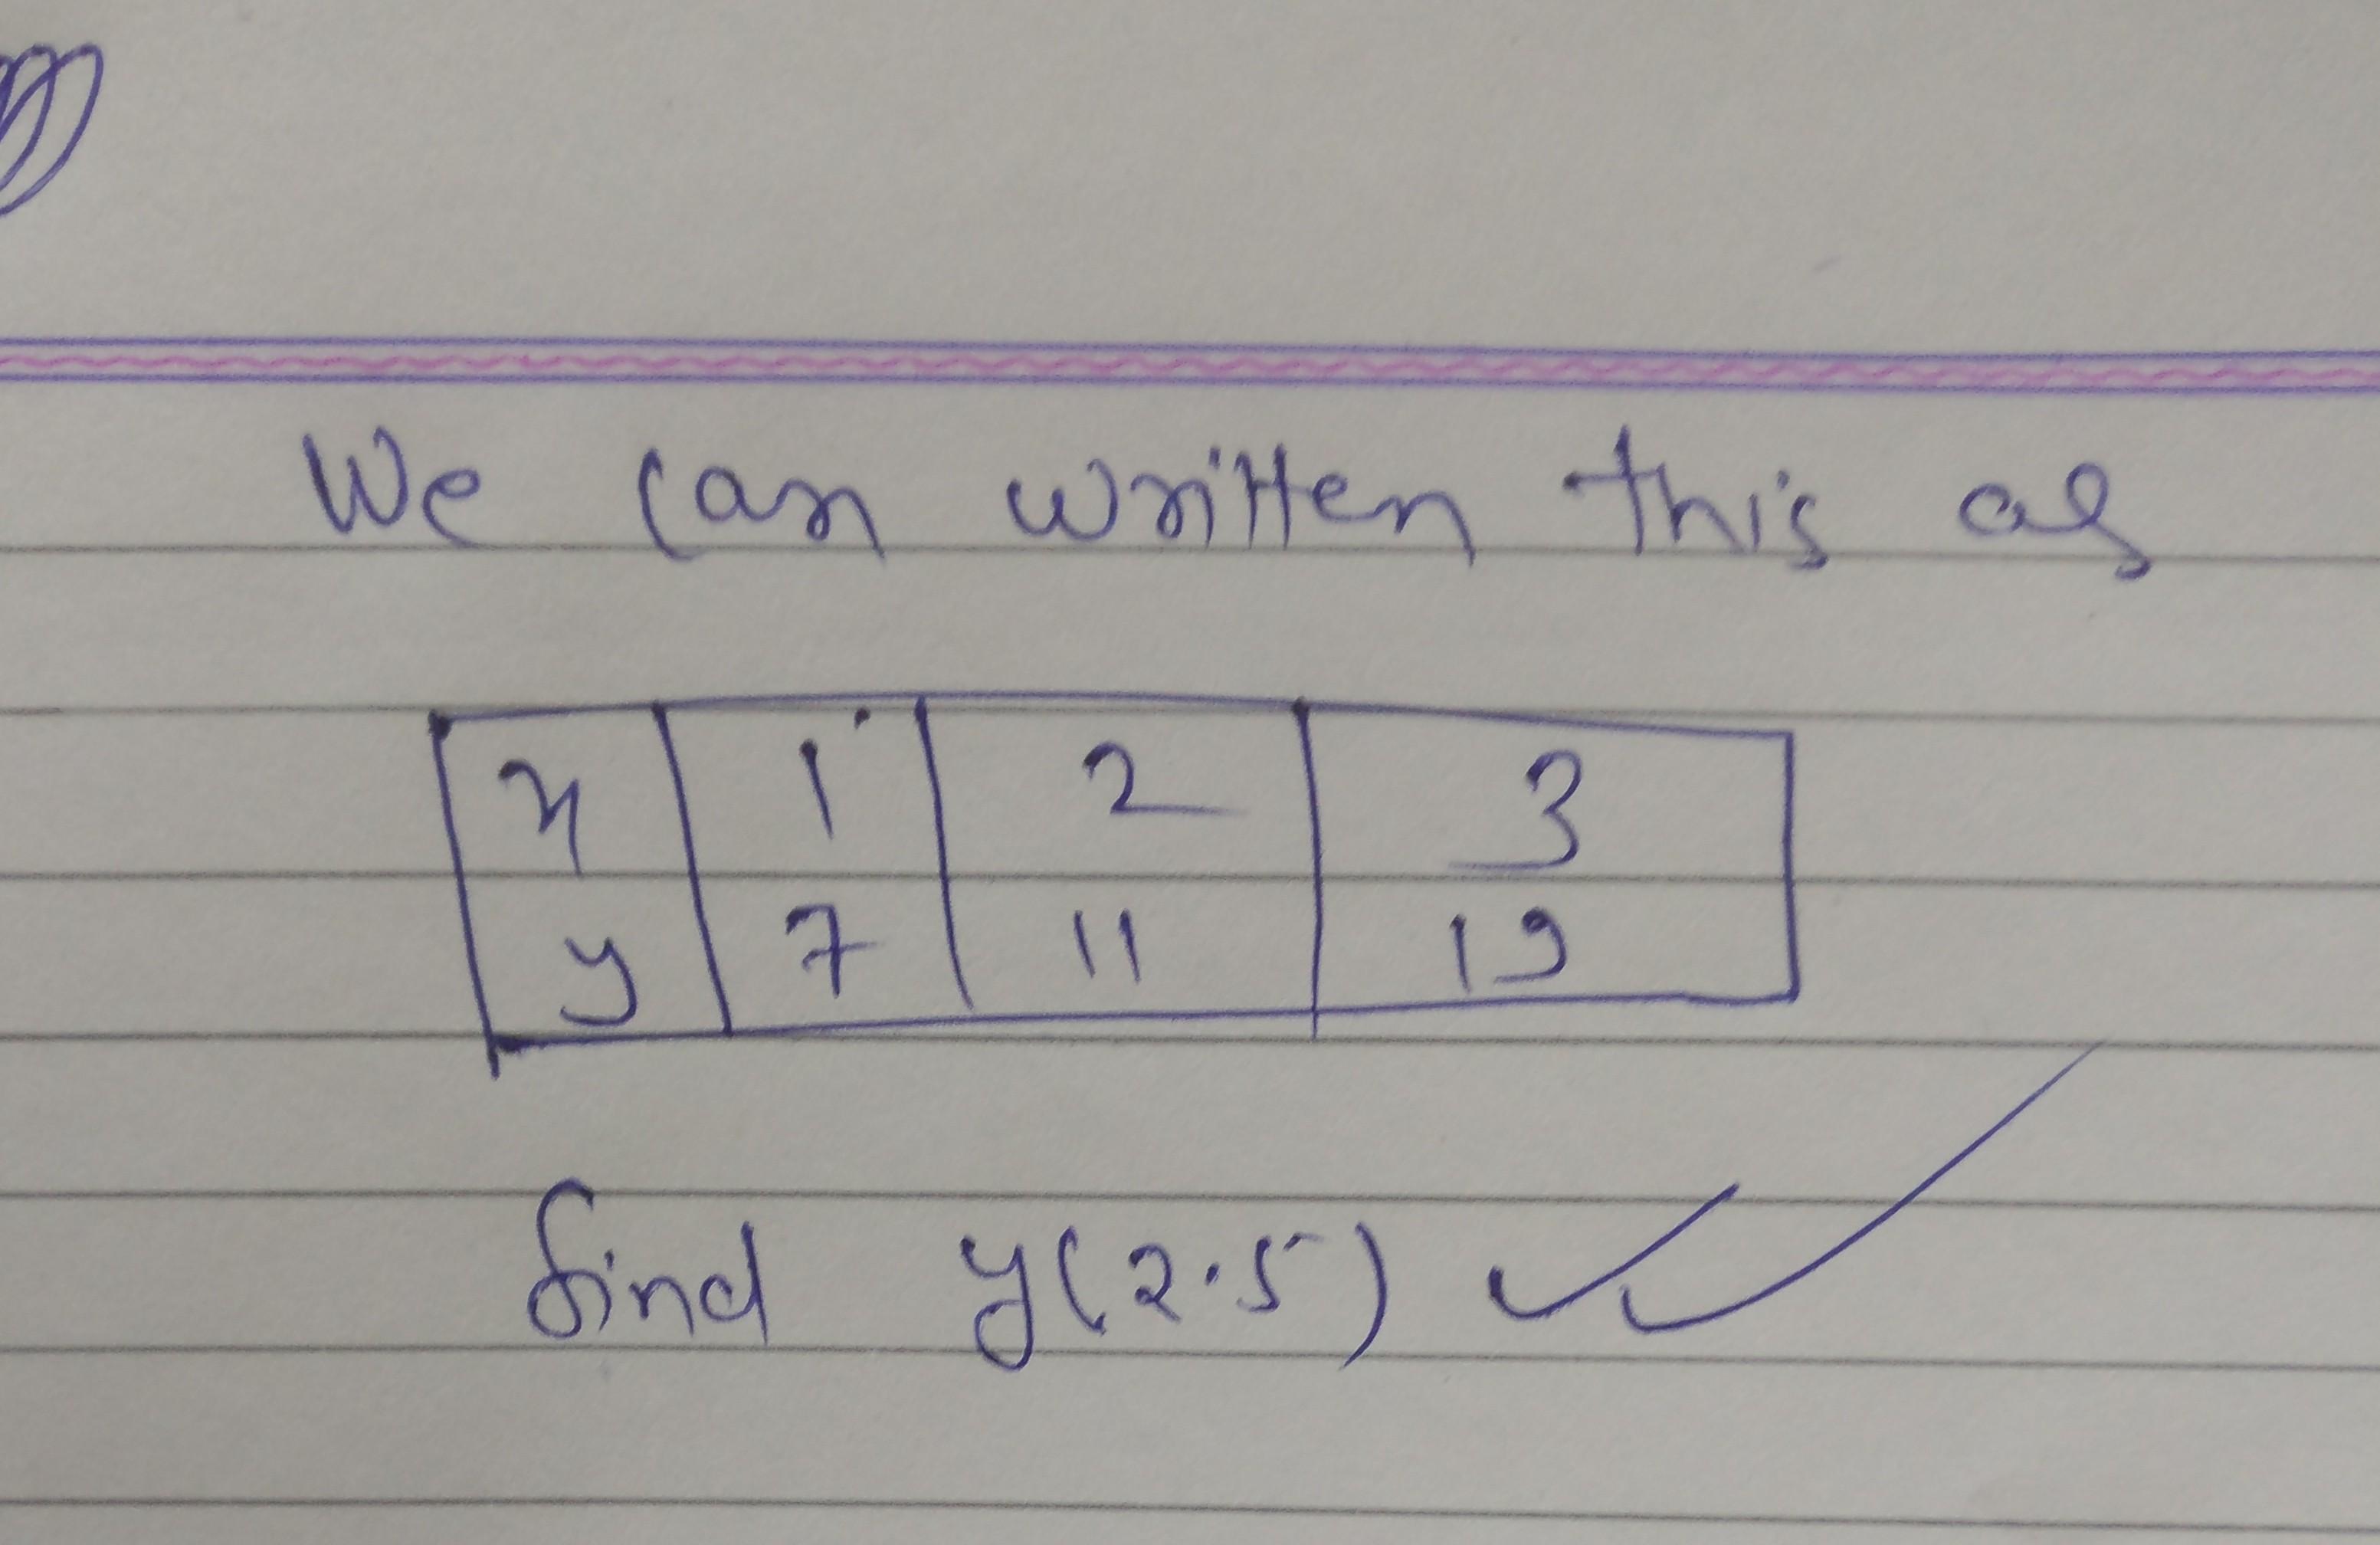 We can written this as
x 1 2 3
y 7 11 19
find y(2.5)